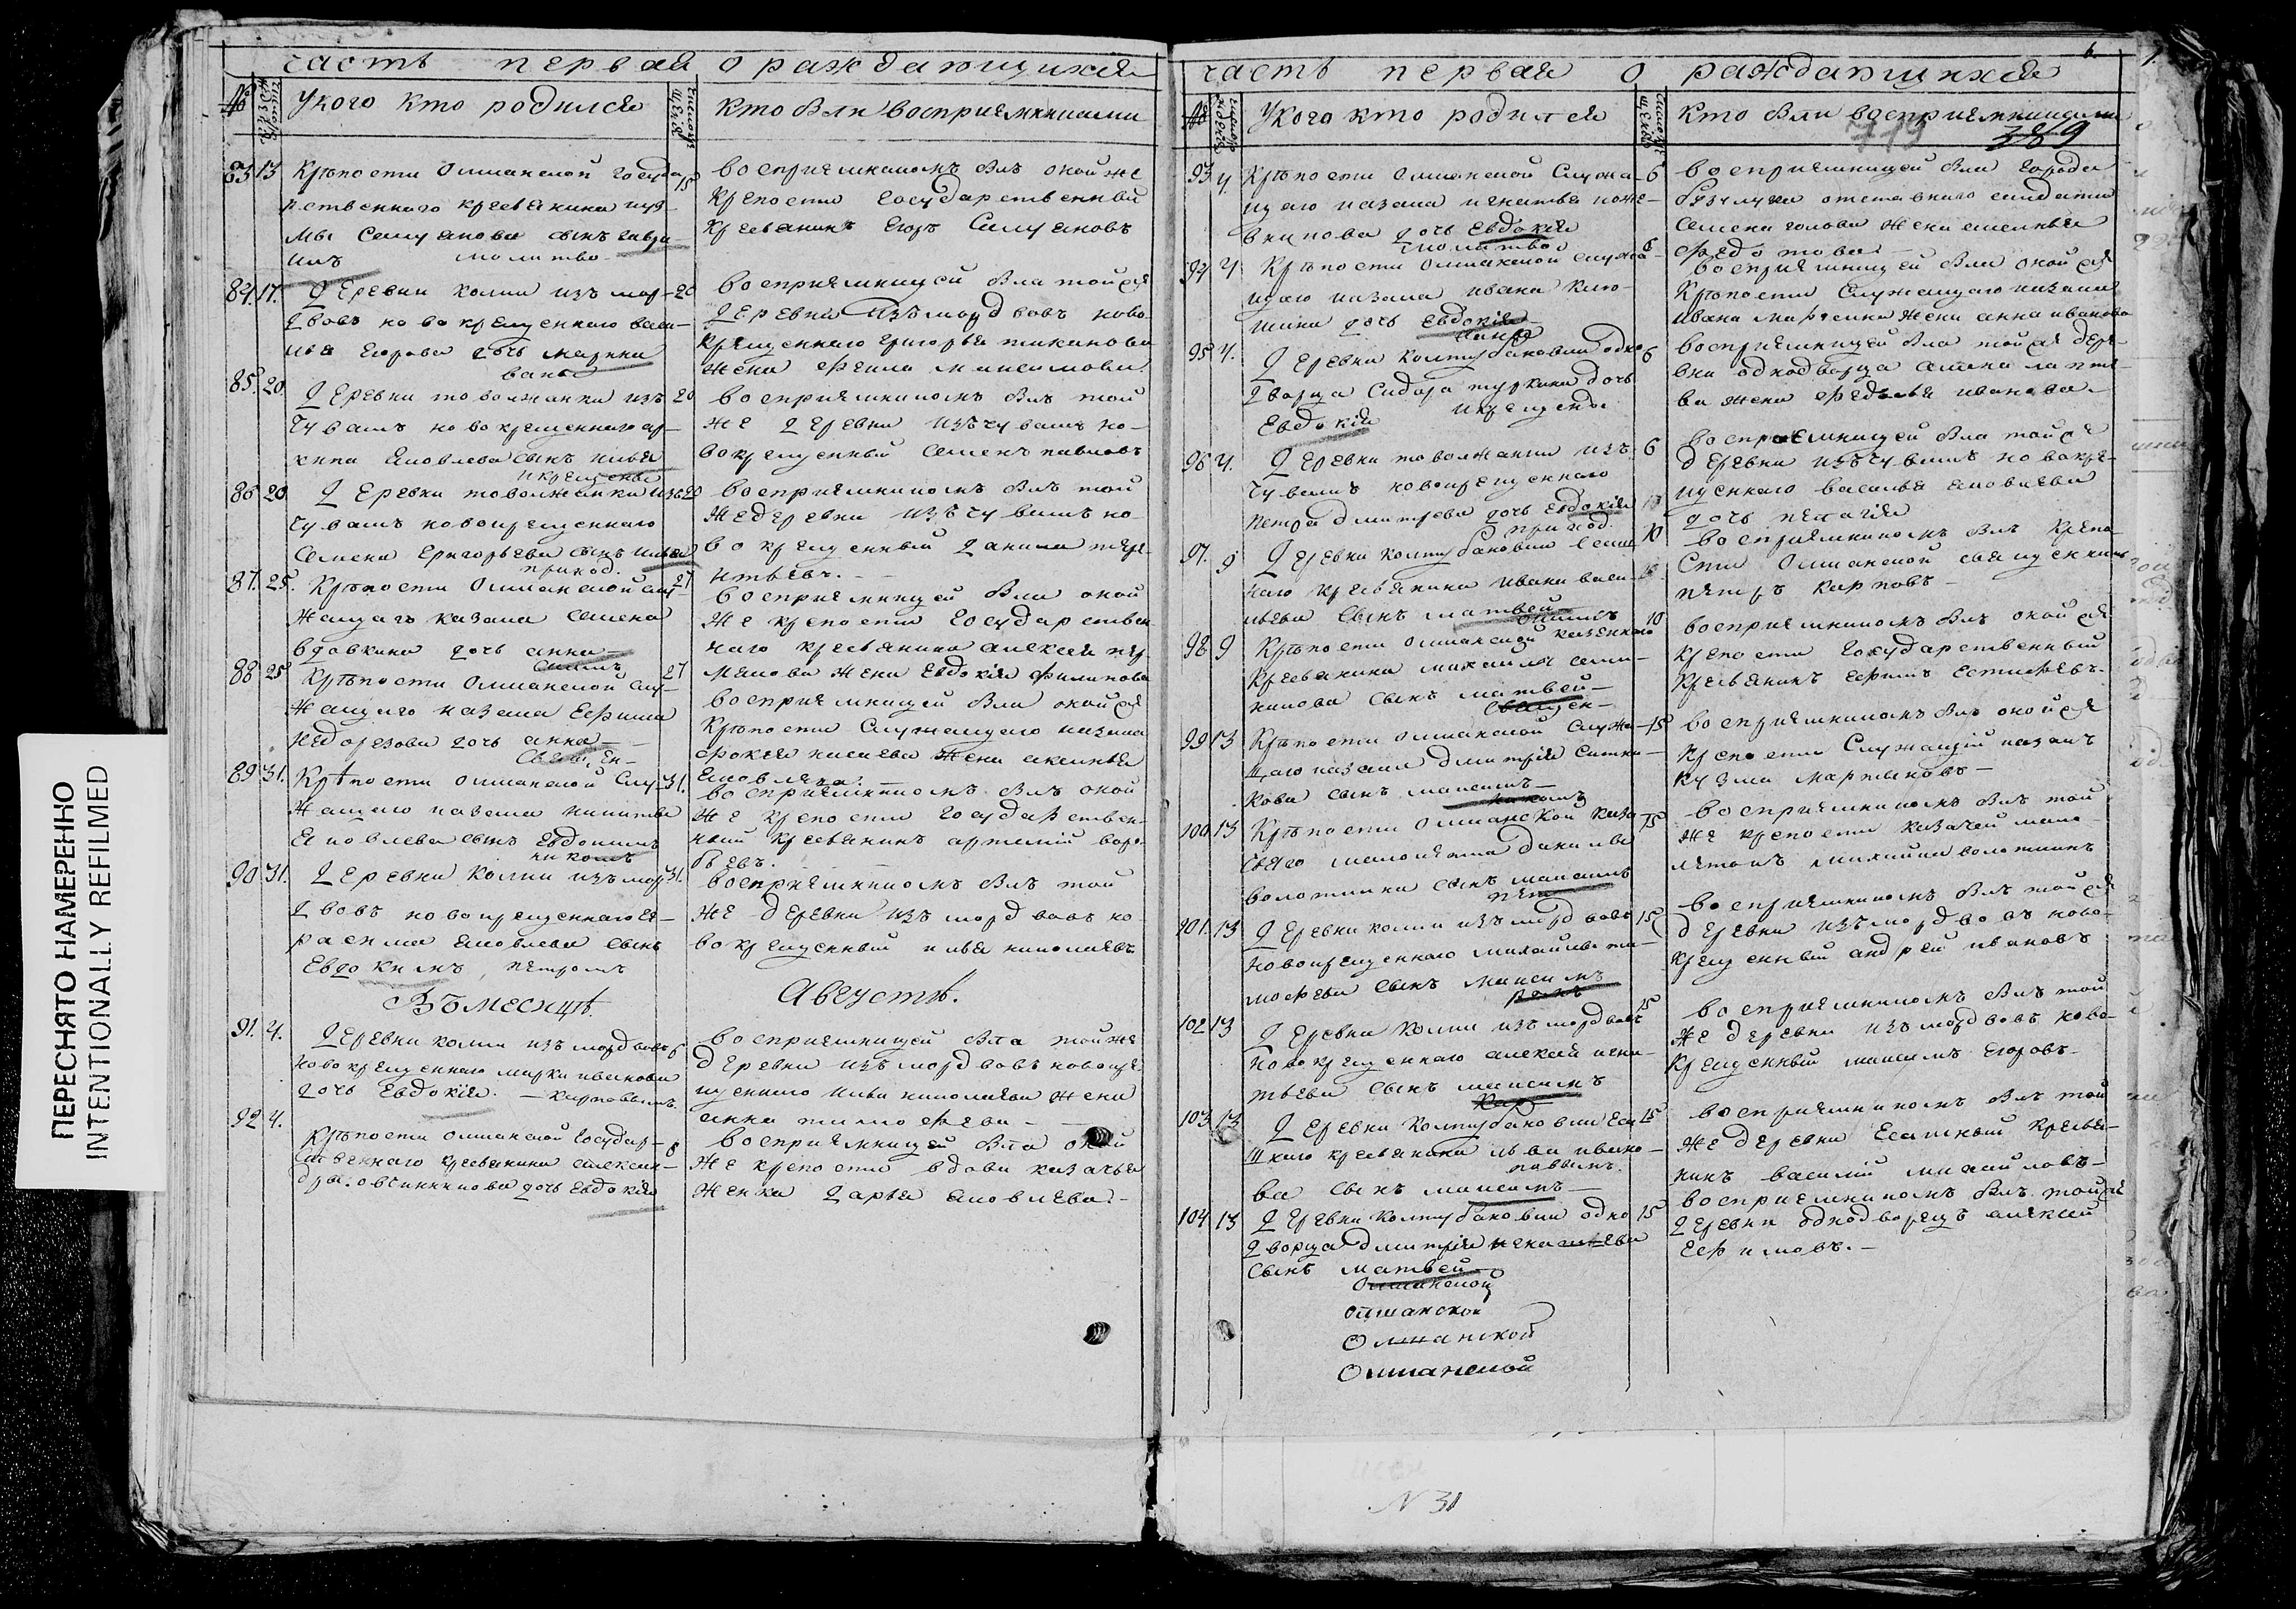 часть первая о раждающихся
№
У кого кто родился
кто был восприемниками
83 13 Крѣпости Олшанской госуда 15
рственнаго кресьянина куз-
мы Селуянова сынъ гаври-
илъ молитво
восприемникомъ былъ оной же
крепости государственный
кресьянинъ егоръ Селуяновъ
84. 17. Деревни колки изъ мор- 20
двовъ новокрещеннаго васи-
лья егорова дочь марина
восприемницей была той же
деревни изъ мордвовъ ново
крещеннаго григорья
жена максимова
85. 20. Деревни товолжанки изъ 20
чувашъ новокрещеннаго ар-
хипа яковлева сынъ илья
и крещены
восприемникомъ былъ той
же деревни изъ чувашъ но-
вокрещенный семенъ павловъ
86 20. Деревни товолжанки изъ 20
чувашъ новокрещеннаго
Семена григорьева сынъ илья
приход.
восприемникомъ былъ той
же деревни изъ чувашъ но-
вокрещенный данила тере-
нтьевъ.
87. 25. Крѣпости Олшанской слу 27
жащаго казака семена
вдовкина дочь анна
восприемницей была оной
же крепости государствен
наго кресьянина алексея пер-
мякова жена Евдокія филипова
88 25 Крѣпости Олшанской слу- 27
жащаго казака Ефима
недорезова дочь анна
Священ-
восприемницей была оной же
крѣпости служащаго казака
жена акелина
яковлева.
89. 31. Крѣпости олшанской Слу- 31.
жащаго казака никиты
яковлева сынъ Евдокимъ
восприемникомъ былъ оной
же крепости государствен-
ный кресьянинъ артемій воро-
бьевъ.
90. 31. Деревни колки изъ мор 31.
двовъ новокрещеннаго ге-
расима яковлева сынъ
Евдокимъ, петромъ
восприемникомъ былъ той
же деревни изъ мордвовъ но-
вокрещенный илья николаевъ
Въ месяцѣ Августѣ.
91. 4. Деревни колки изъ мордвовъ 6
новокрещеннаго марки иванова
дочь Евдокія. - карповымъ
восприемницей была той же
деревни изъ мордвовъ новокре
щеннаго ильи николаева жена
анна тимофеева
92 4. Крѣпости олшанской государ- 6
ственнаго кресьянина алексан-
дры. овчинникова дочь Евдокія
восприемницей была оной
же крепости вдова казачья
женка Дарья яковлева.-
часть первая о раждающихся
№
У кого кто родился
кто был восприемниками
719 369
93 4. Крѣпости олшанской служа- 6
щаго казака игнатья коже-
вникова дочь Евдокія
молитво
восприемницей была города
бузулука отставнаго салдата
семена голова жена емелина
федотова
94 4 Крѣпости олшанской служа- 6
щаго казака ивана
дочь Евдокія
восприемницей была оной же
крѣпости служащаго казака
ивана жена анна иванова
95 4. Деревни колтубановки одно 6
дворца Сидора туркина дочь
Евдокія и крещены
восприемницей была той же дере-
вни однодворца
ва жена федосья иванова
96 4. Деревни товолжанки изъ 6
чувашъ новокрещеннаго
петра дмитрева дочь Евдокія
приход.
восприемницей была той же
деревни изъ чувашъ новокре-
щеннаго василья яковлева
дочь пелагія
97. 9 Деревни колтубановки Есаш 10
наго кресьянина ивана васи-
льева сынъ матвей
восприемникомъ былъ крепо
сти олшанской священникъ
петръ карповъ
98 9 Крѣпости олшанской казеннаго 10
кресьянина михайлы семи-
кинова сынъ матвей
Священ-
восприемникомъ былъ оной же
крепости государственный
кресьянинъ ефимъ Естифеевъ.
99 13 Крѣпости олшанской служа- 15
щаго казака дмитрія ситни-
кова сынъ максимъ
восприемникомъ былъ оной же
крепости Служащій казакъ
кузма мартыновъ
100 13 Крѣпости олшанской каза- 15
чьяго малолетка данилы
волоткина сынъ максимъ
восприемникомъ былъ той
же крепости казачей мало-
летокъ михайла волоткинъ
101. 13 Деревни колки изъ мордвовъ 15
новокрещеннаго михайлы ти-
мофеева сынъ максимъ
восприемникомъ былъ той же
деревни изъ мордвовъ ново-
крещенный андрей ивановъ
102 13 Деревни колки изъ мордвовъ 15
новокрещеннаго алексея игна-
тьева сынъ максимъ
восприемникомъ былъ той
же деревни изъ мордвовъ ново-
крещенный максимъ Егоровъ.
103 13 Деревни колтубановки Еса 15
шнаго кресьянина льва ивано-
ва сынъ максимъ
восприемникомъ былъ той
же деревни Есашный кресья-
нинъ василій михайловъ-
104 13 Деревни колтубановки одно 15
дворца дмитрія
сынъ матвей
восприемникомъ былъ той же
деревни однодворецъ алексей
Ефимовъ.-
Олшанской
олшанской
Олшанской
Олшанской
N 31
ПЕРЕСНЯТО НАМЕРЕННО
INTENTIONALLY REFILMED